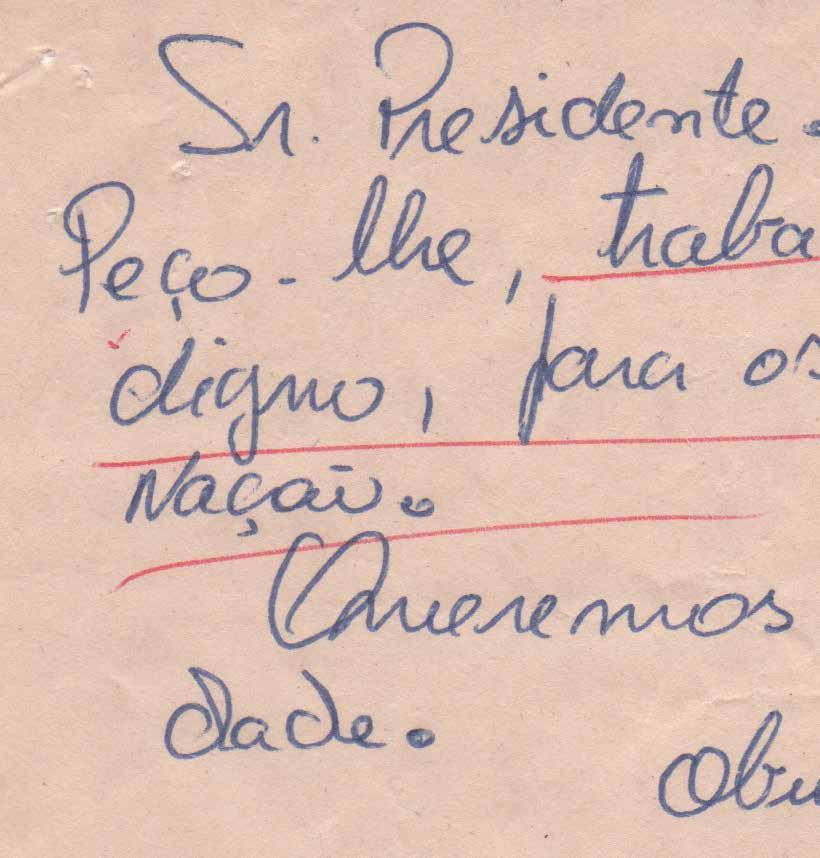 Sr. Presidente.
Peço-lhe, traba
digno, para os
Nação.
Queremos
dade.
Obri